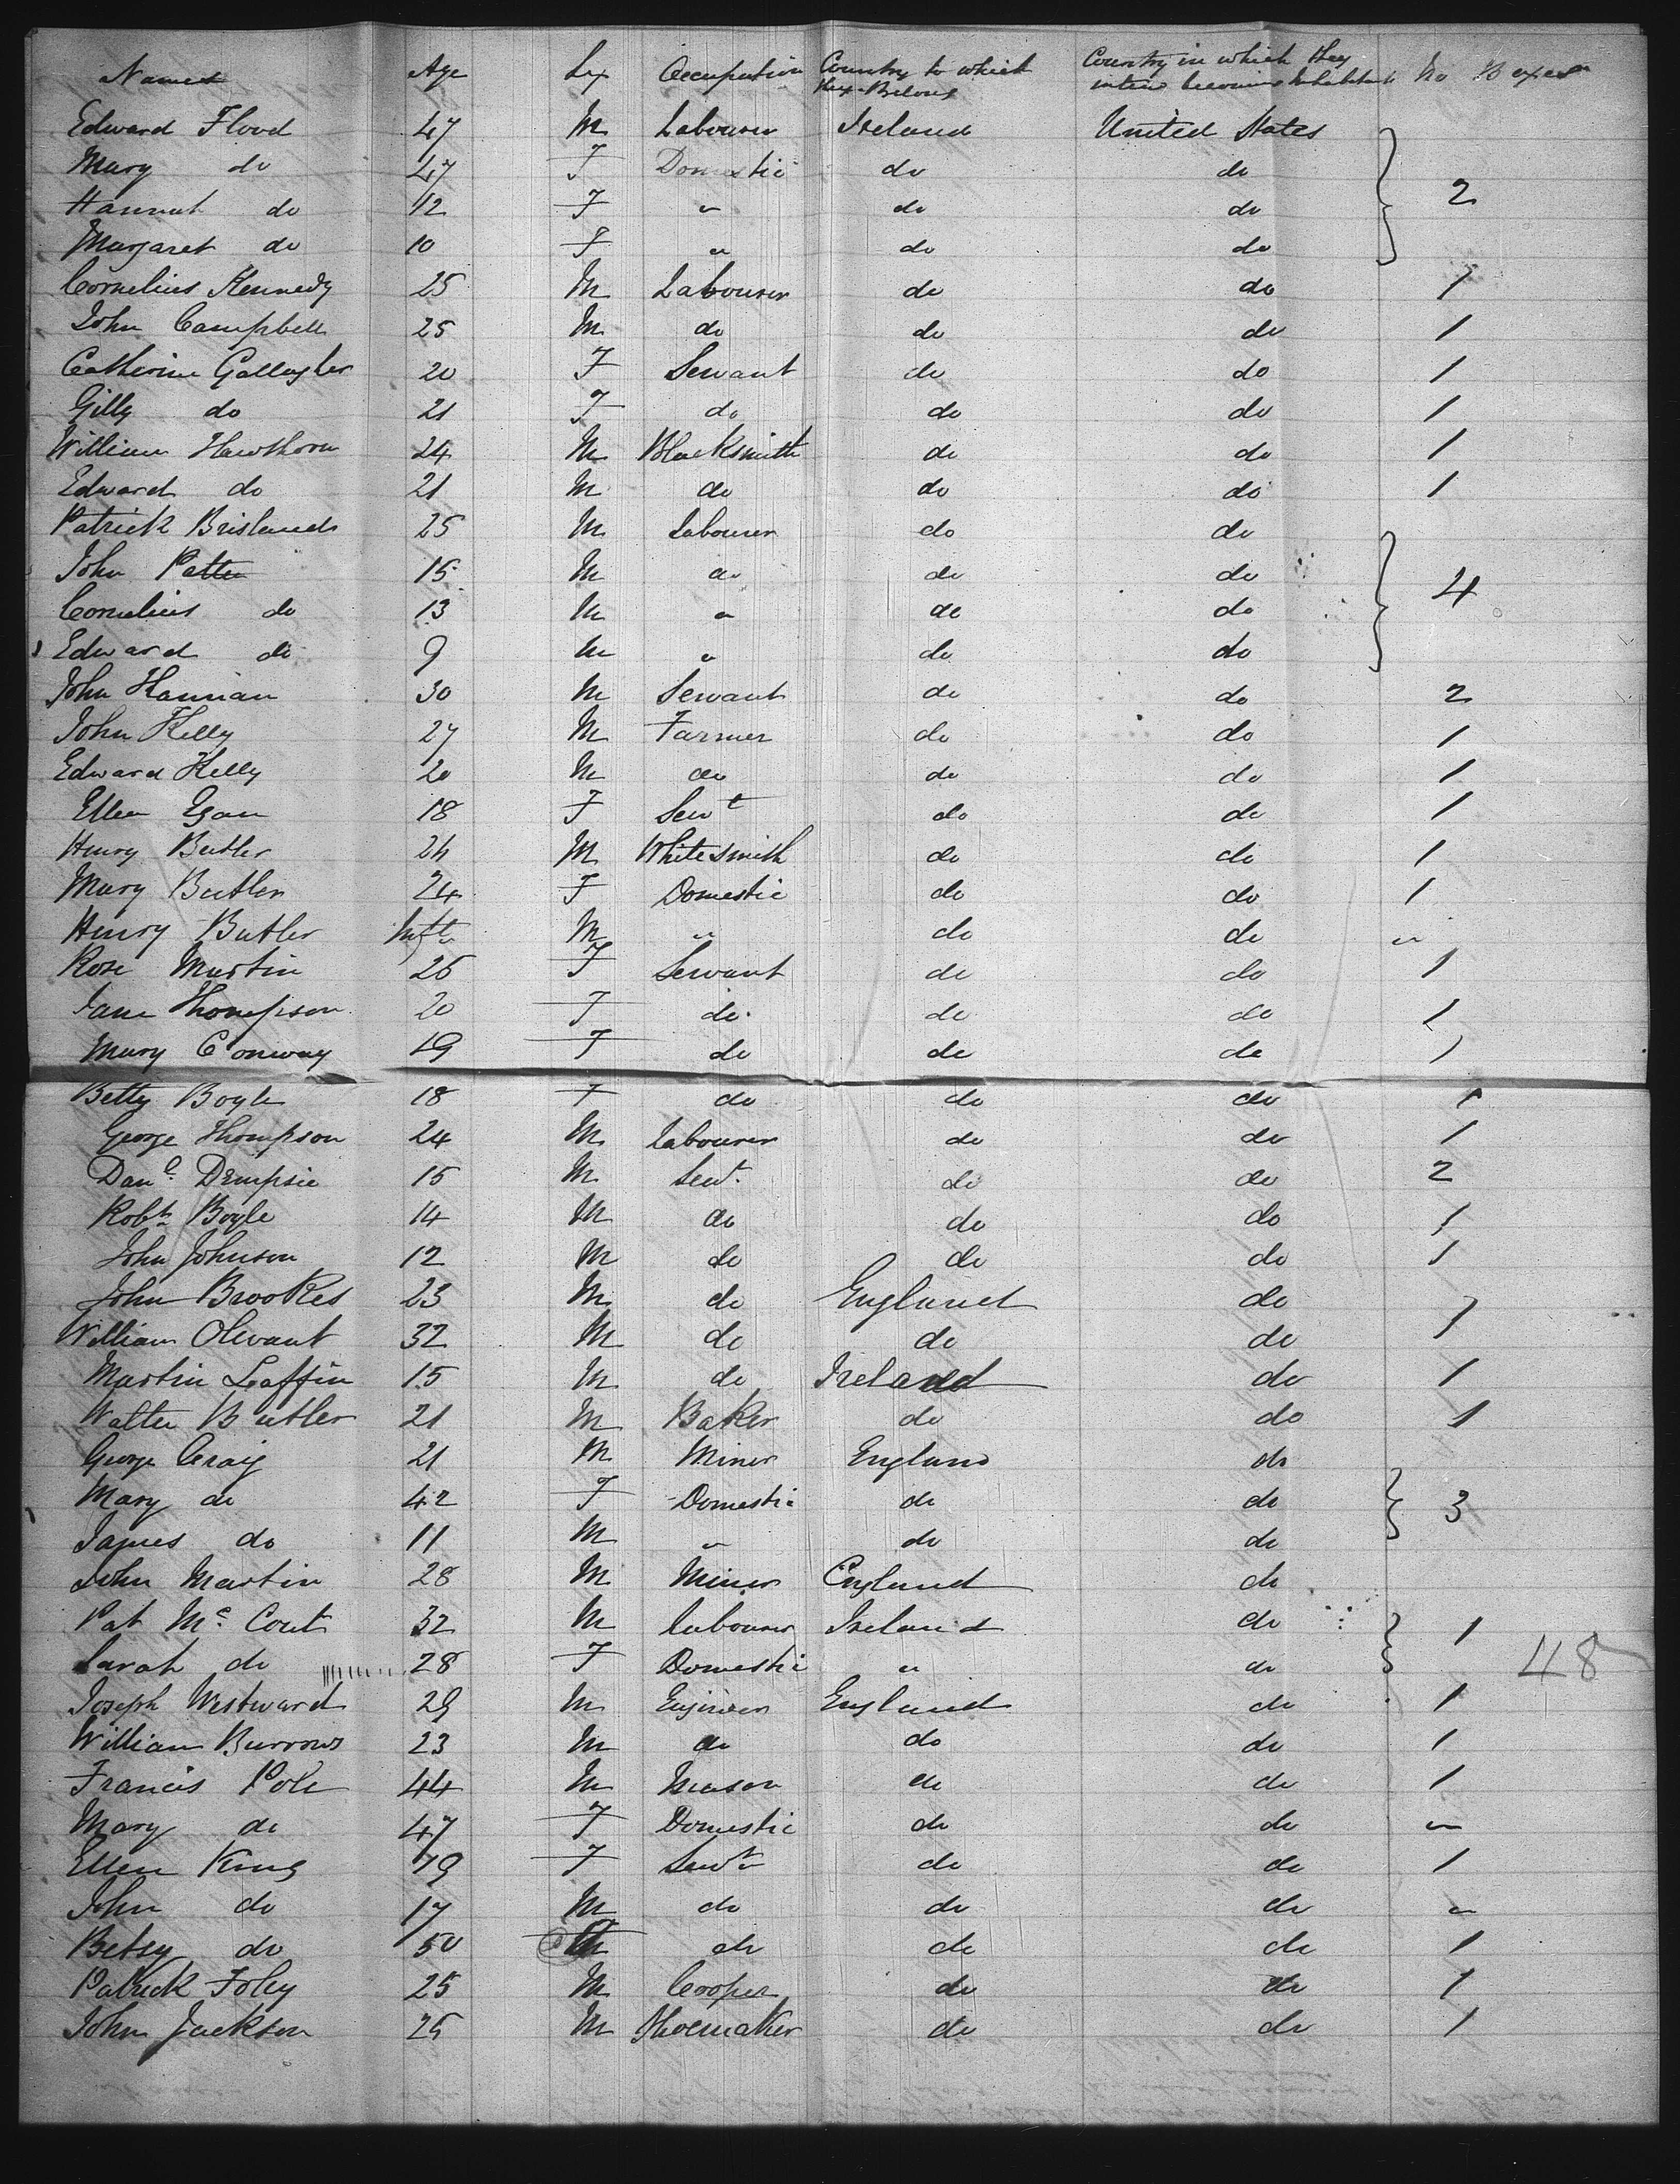 Names Age Sex Occupation Country to which they Belong Country in which they intend becoming Inhabitants No Boxes
Edward Flood 47 M Labourer Ireland United States
Mary do 47 F Domestic do do
Hannah do 12 F " do do 2
Margaret do 10 F " do do
Cornelius Kennedy 25 M Labourer do do 1
John Campbell 25 M do do do 1
Catherine Gallagher 20 F Servant do do 1
Gilly do 21 F do do do 1
William Hawthorn 24 M Blacksmith do do 1
Edward do 21 M do do do 1
Patrick Brisland 25 M Labourer do do
John Patten 15 M do do do 4
Cornelius do 13 M " do do
Edward do 9 M " do do
John Hannan 30 M Servant do do 2
John Kelly 27 M Farmer do do 1
Edward Kelly 20 M do do do 1
Ellen Egan 18 F Servt do do 1
Henry Butler 24 M Whitesmith do do 1
Mary Butler 24 F Domestic do do 1
Henry Butler Inft M " do do "
Rose Martin 26 F Servant do do 1
Jane Thompson 20 F do do do 1
Mary Conway 19 F do do do 1
Betty Boyle 18 F do do do 1
George Thompson 24 M Labourer do do 1
Danl Dempsie 15 M Servt do do 2
Robt Boyle 14 M do do do 1
John Johnson 12 M do do do 1
John Brookes 23 M do England do
William Olevant 32 M do do do 1
Martin Laffin 15 M do Ireland do 1
Walter Butler 21 M Baker do do 1
George Craig 21 M Miner England do
Mary do 42 F Domestic do do 3
James do 11 M " do do
John Martin 28 M Miner England do
Pat Mc Court 32 M Labourer Ireland do 1
Sarah do 28 F Domestic " do 48
Joseph Westward 29 M Engineer England do 1
William Burrows 23 M do do do 1
Francis Pole 44 M Mason do do 1
Mary do 47 F Domestic do do "
Ellen King 19 F Servt do do 1
John do 17 M do do do "
Betsy do 50 do do do 1
Patrick Foley 25 M Cooper do do 1
John Jackson 25 M Shoemaker do do 1